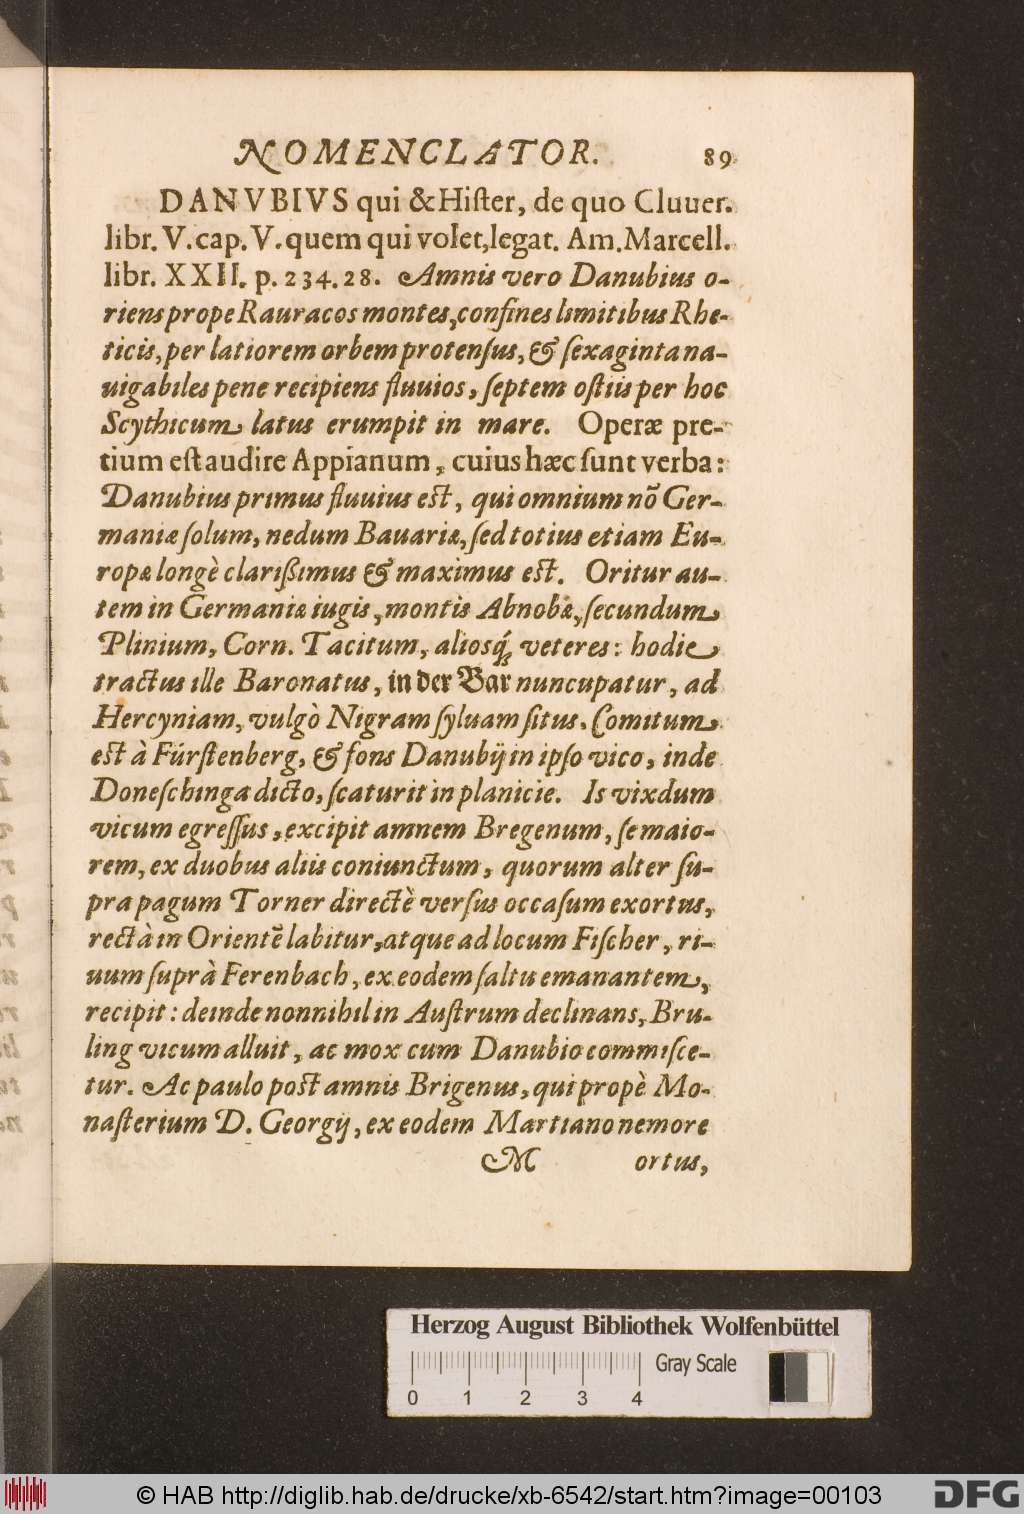 NOMENCLATOR. 89
DANVBIVS qui & Hiſter, de quo Cluuer.
libr. V. cap. V. quem qui volet, legat. Am. Marcell.
libr. XXII. p. 234. 28. Amnis vero Danubius o-
riens prope Rauracos montes, confines limitibus Rhe-
ticis, per latiorem orbem protenſus, & ſexaginta na-
uigabiles pene recipiens fluuios, ſeptem oſtiis per hoc
Scythicum latus erumpit in mare. Operæ pre-
tium eſt audire Appianum, cuius hæc ſunt verba:
Danubius primus fluuius eſt, qui omnium nõ Ger-
maniæ ſolum, nedum Bauariæ, ſed totius etiam Eu-
ropæ longè clarißimus & maximus eſt. Oritur au-
tem in Germaniæ iugis, montis Abnobæ, ſecundum
Plinium, Corn. Tacitum, alioſq́; veteres: hodie
tractus ille Baronatus, in der Bar nuncupatur, ad
Hercyniam, vulgò Nigram ſyluam ſitus. Comitum
eſt à Fúrſtenberg, & fons Danubij in ipſo vico, inde
Doneſchinga dicto, ſcaturit in planicie. Is vixdum
vicum egreſſus, excipit amnem Bregenum, ſe maio-
rem, ex duobus aliis coniunctum, quorum alter ſu-
pra pagum Torner directè verſus occaſum exortus,
rectà in Orientẽ labitur, atque ad locum Fiſcher, ri-
uum ſuprà Ferenbach, ex eodem ſaltu emanantem,
recipit: deinde nonnihil in Auſtrum declinans, Bru-
ling vicum alluit, ac mox cum Danubio commiſce-
tur. Ac paulo poſt amnis Brigenus, qui propè Mo-
naſterium D. Georgij, ex eodem Martiano nemore
M ortus,
Herzog August Bibliothek Wolfenbüttel
Gray Scale
0 1 2 3 4
© HAB http://diglib.hab.de/drucke/xb-6542/start.htm?image=00103
DFG